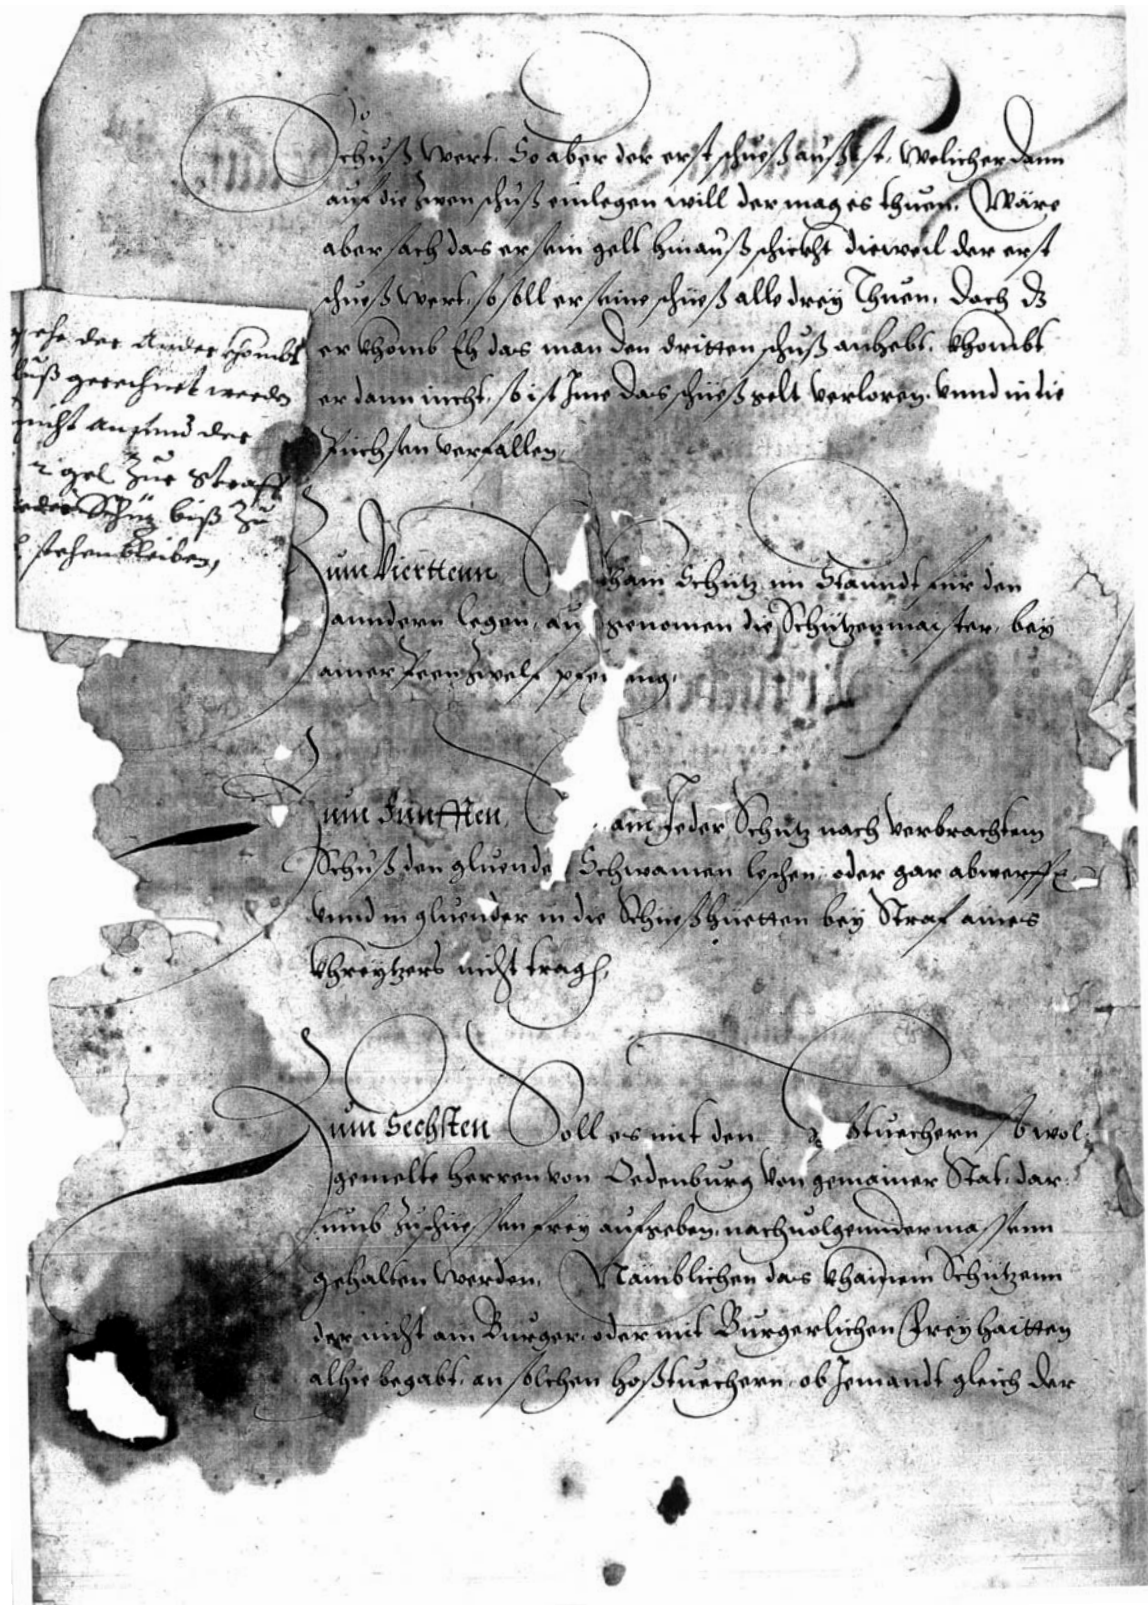 Schuß wert. So aber der erst schueß auß ist, welicher dann
auf die zwen schuß einlegen will der mag es thuen. Wäre
aber sach das er sein gelt hinauß schickht dieweil der erst
schueß wert, so soll er seine schüeß alle drey Thuen. doch dz
er khomb Eh das man den dritten schuß anhebt. khombt
er dann nicht, so ist Ime das schüeßgelt verloren. vnnd in die
Püchsen verfallen.
ehe der Ander khombt
gerechnet werden
nicht der
zur Straff
Schütz biß zu
stehen bleiben,
Zum Vierttenn khain Schütz im Stanndt für den
anndern legen, außgenomen die Schützenmaister, bey
ainer Peen zwelf pfening.
Zum Funfften Jeder Schütz nach verbrachtem
Schuß den gluende Schwamen leschen oder gar abwerffen
vnnd in gluender in die Schüeßhüetten bey Straf aines
khreytzers nicht tragen.
Zum Sechsten Soll es mit den tuechern So wol
gemelte Herren von Oedenburg von gemainer Stat, dar
umb zuschiessen frey aufgeben, nachuolgenndermassenn
gehalten werden. Nämblichen das khainem Schützenn
der nicht am Burger, oder mit Burgerlichen Freyhaitten
alhie begabt, an solchen hoßtuechern, ob Jemandt gleich der